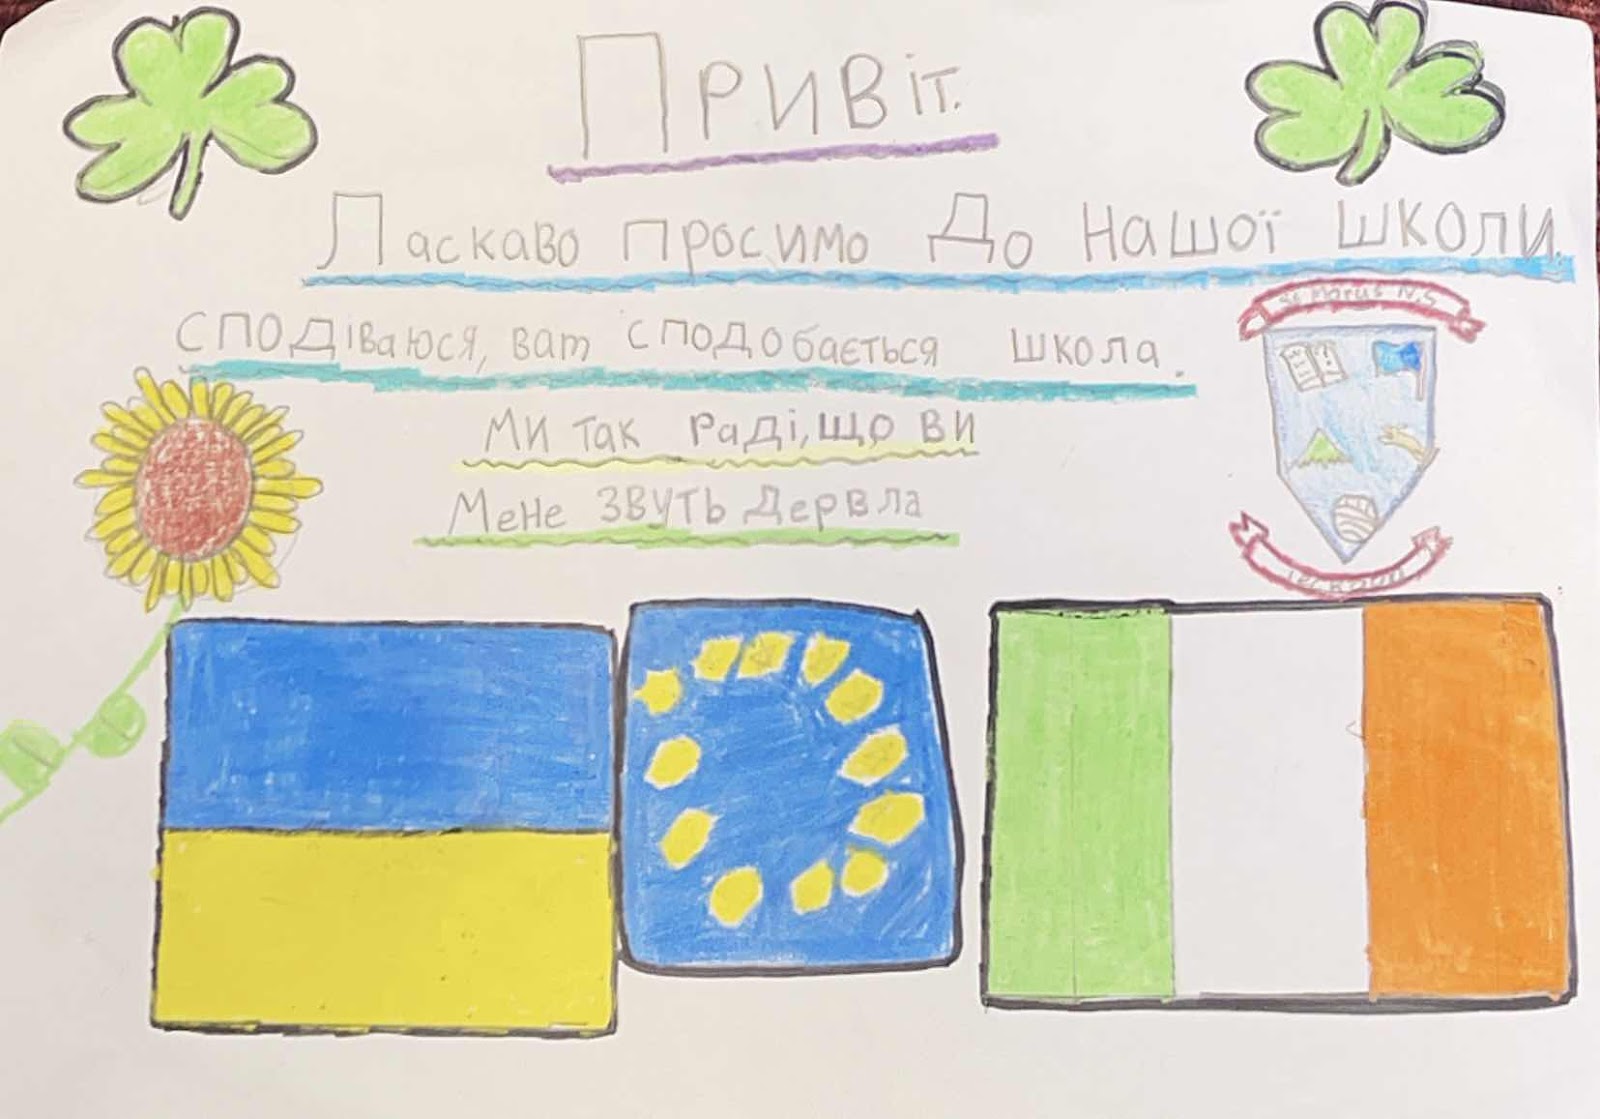 Привіт.
Ласкаво просимо До нашої школи.
сподіваюся, ват сподобається школа.
Ми так раді, що ви
Мене звуть Дервла